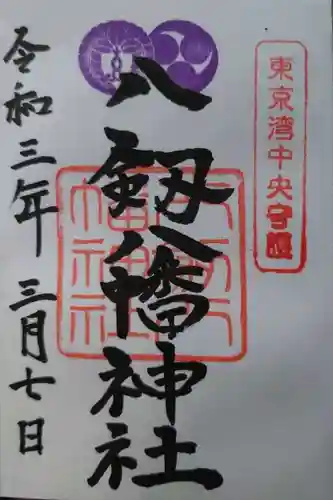 東京湾中央守護
八剱八幡神社
令和三年 三月七日